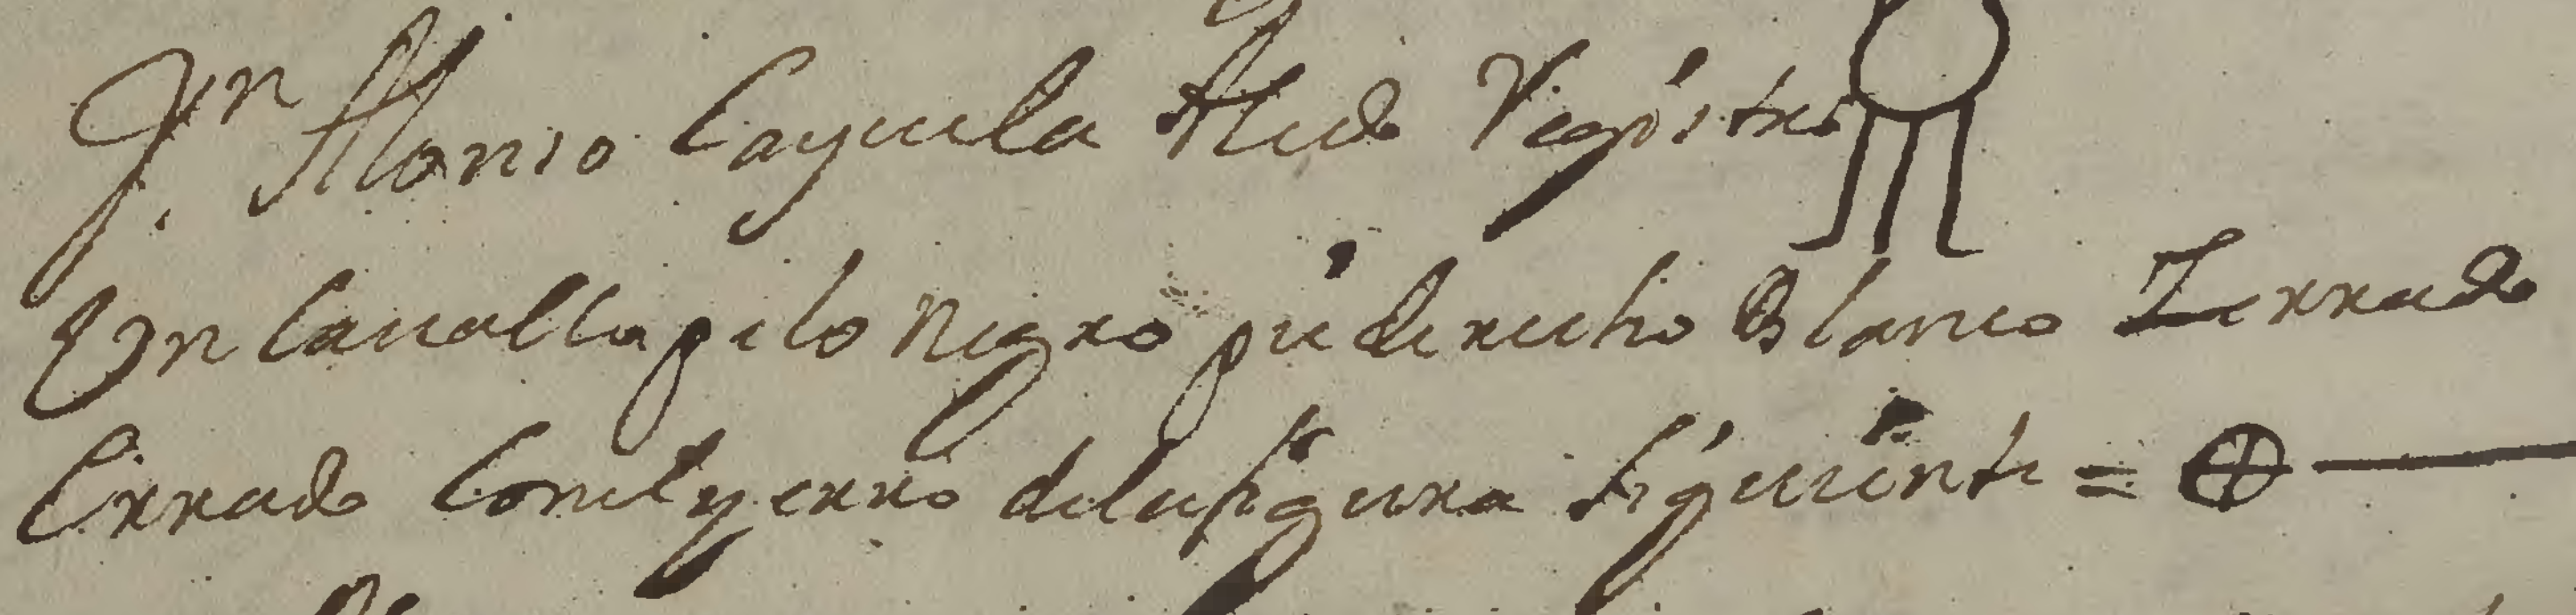 Jn. Alonso Cayuela Alcde Registro
Un Cauallo pelo negro pie derecho Blanco Zerrado
Errado Con el yerro de la figura siguiente =